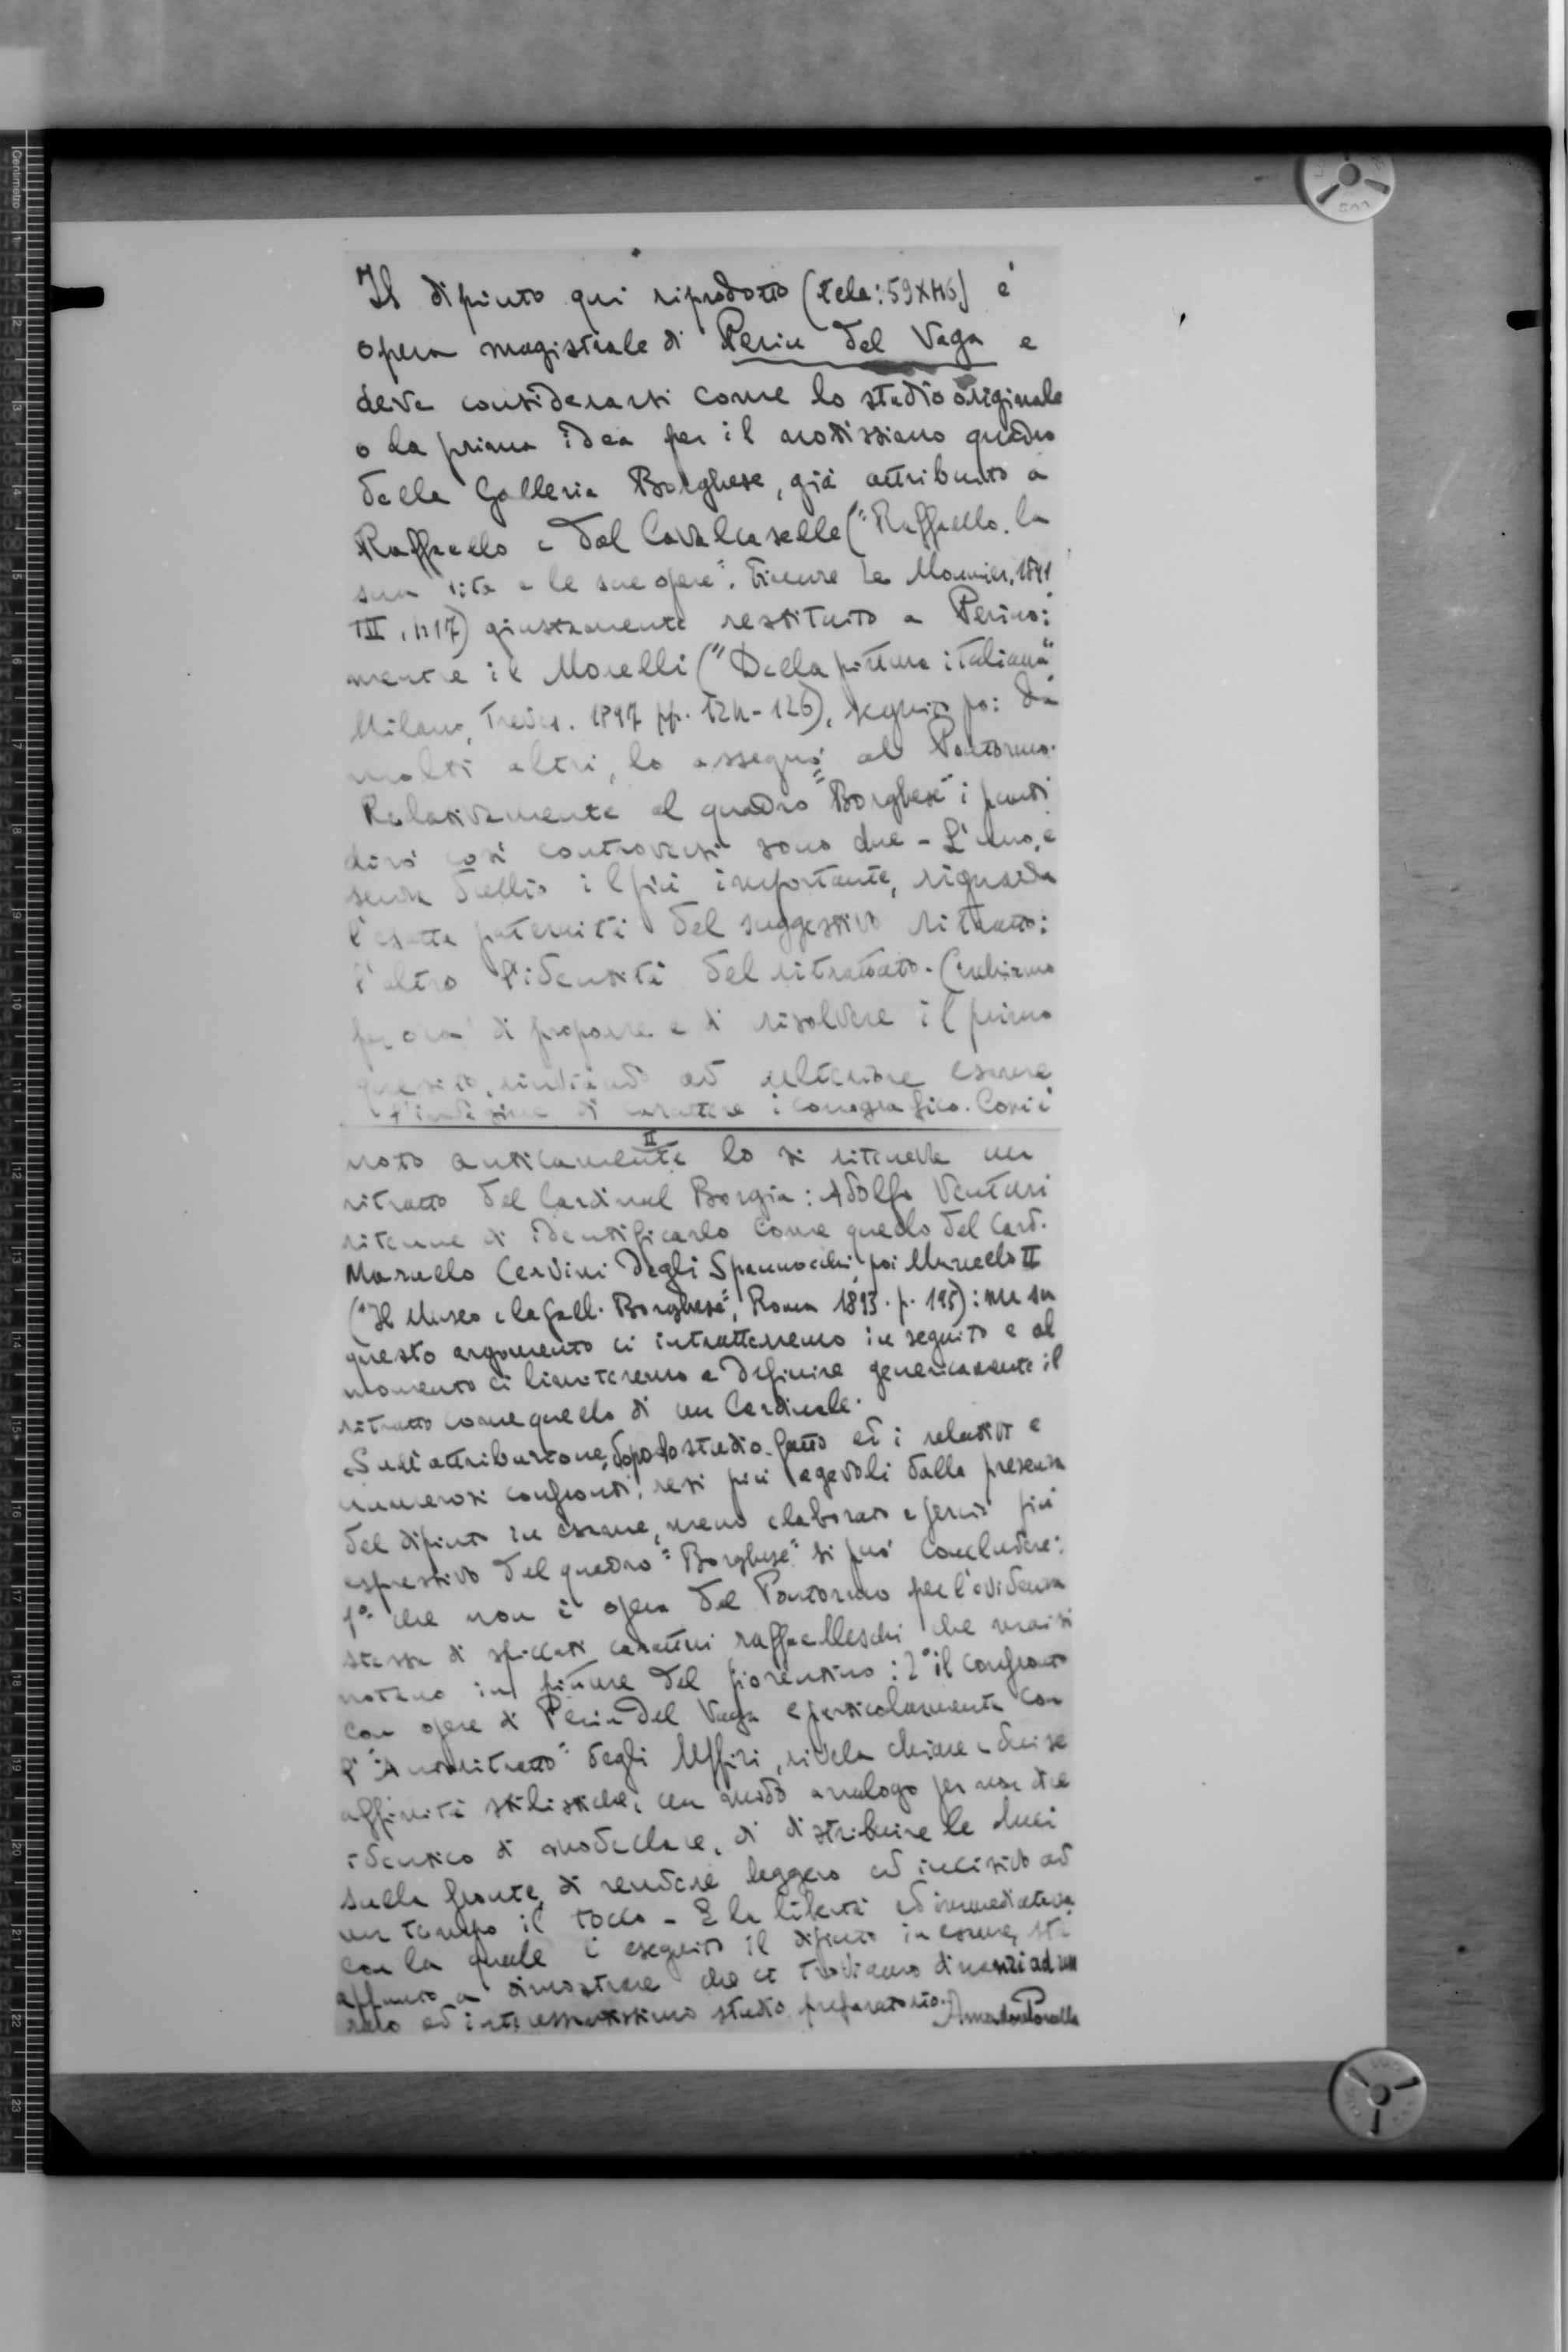 Il dipinto qui riprodotto (tela: 59x46) è
opera magistrale di Perin del Vaga e
deve considerarsi come lo studio originale
o la prima idea per il notissimo quadro
della Galleria Borghese, già attribuito a
Raffaello e dal Cavalcaselle ("Raffaello. la
sua vita e le sue opere". Firenze Le Monnier, 1891
III, 417) giustamente restituito a Perino:
mentre il Morelli ("Della pittura italiana"
Milano, Treves. 1897 pp. 124-126), seguito poi da
molti altri, lo assegnò al Pontormo.
Relativamente al quadro "Borghese" i punti
dirò così controversi sono due - L'uno, e
senza dubbio il più importante, riguarda
l'esatta paternità del suggestivo ritratto:
l'altro l'identità del ritrattato. Crediamo
per ora di proporre e di risolvere il primo
quesito, rinviando ad ulteriore esame
l'indagine di carattere iconografico. Com'è
II
noto anticamente lo si riteneva un
ritratto del Cardinal Borgia: Adolfo Venturi
ritenne di identificarlo come quello del Card.
Marcello Cervini degli Spannocchi, poi Marcello II
("Il Museo e la Gall. Borghese", Roma 1893. p. 195): ma su
questo argomento ci intratterremo in seguito e al
momento ci limiteremo a definire genericamente il
ritratto come quello di un Cardinale.
Sull'attribuzione, dopo lo studio fatto ed i relativi e
numerosi confronti, resi più agevoli dalla presenza
del dipinto in esame, meno elaborato e perciò più
espressivo del quadro "Borghese" si può concludere:
1° che non è opera del Pontormo per l'evidenza
stessa di spiccati caratteri raffaelleschi che mai si
notano in pitture del fiorentino: 2° il confronto
con opere di Perin del Vaga e particolarmente con
l'"Autoritratto" degli Uffizi, rivela chiare e decise
affinità stilistiche: un modo analogo per non dire
identico di modellare, di distribuire le luci
sulla fronte, di rendere leggero ed incisivo ad
un tempo il tocco - E la libertà ed immediatezza
con la quale è eseguito il dipinto in esame, sta
appunto a dimostrare che ci troviamo dinanzi ad un
raro ed interessantissimo studio preparatorio. Amadore Porcella